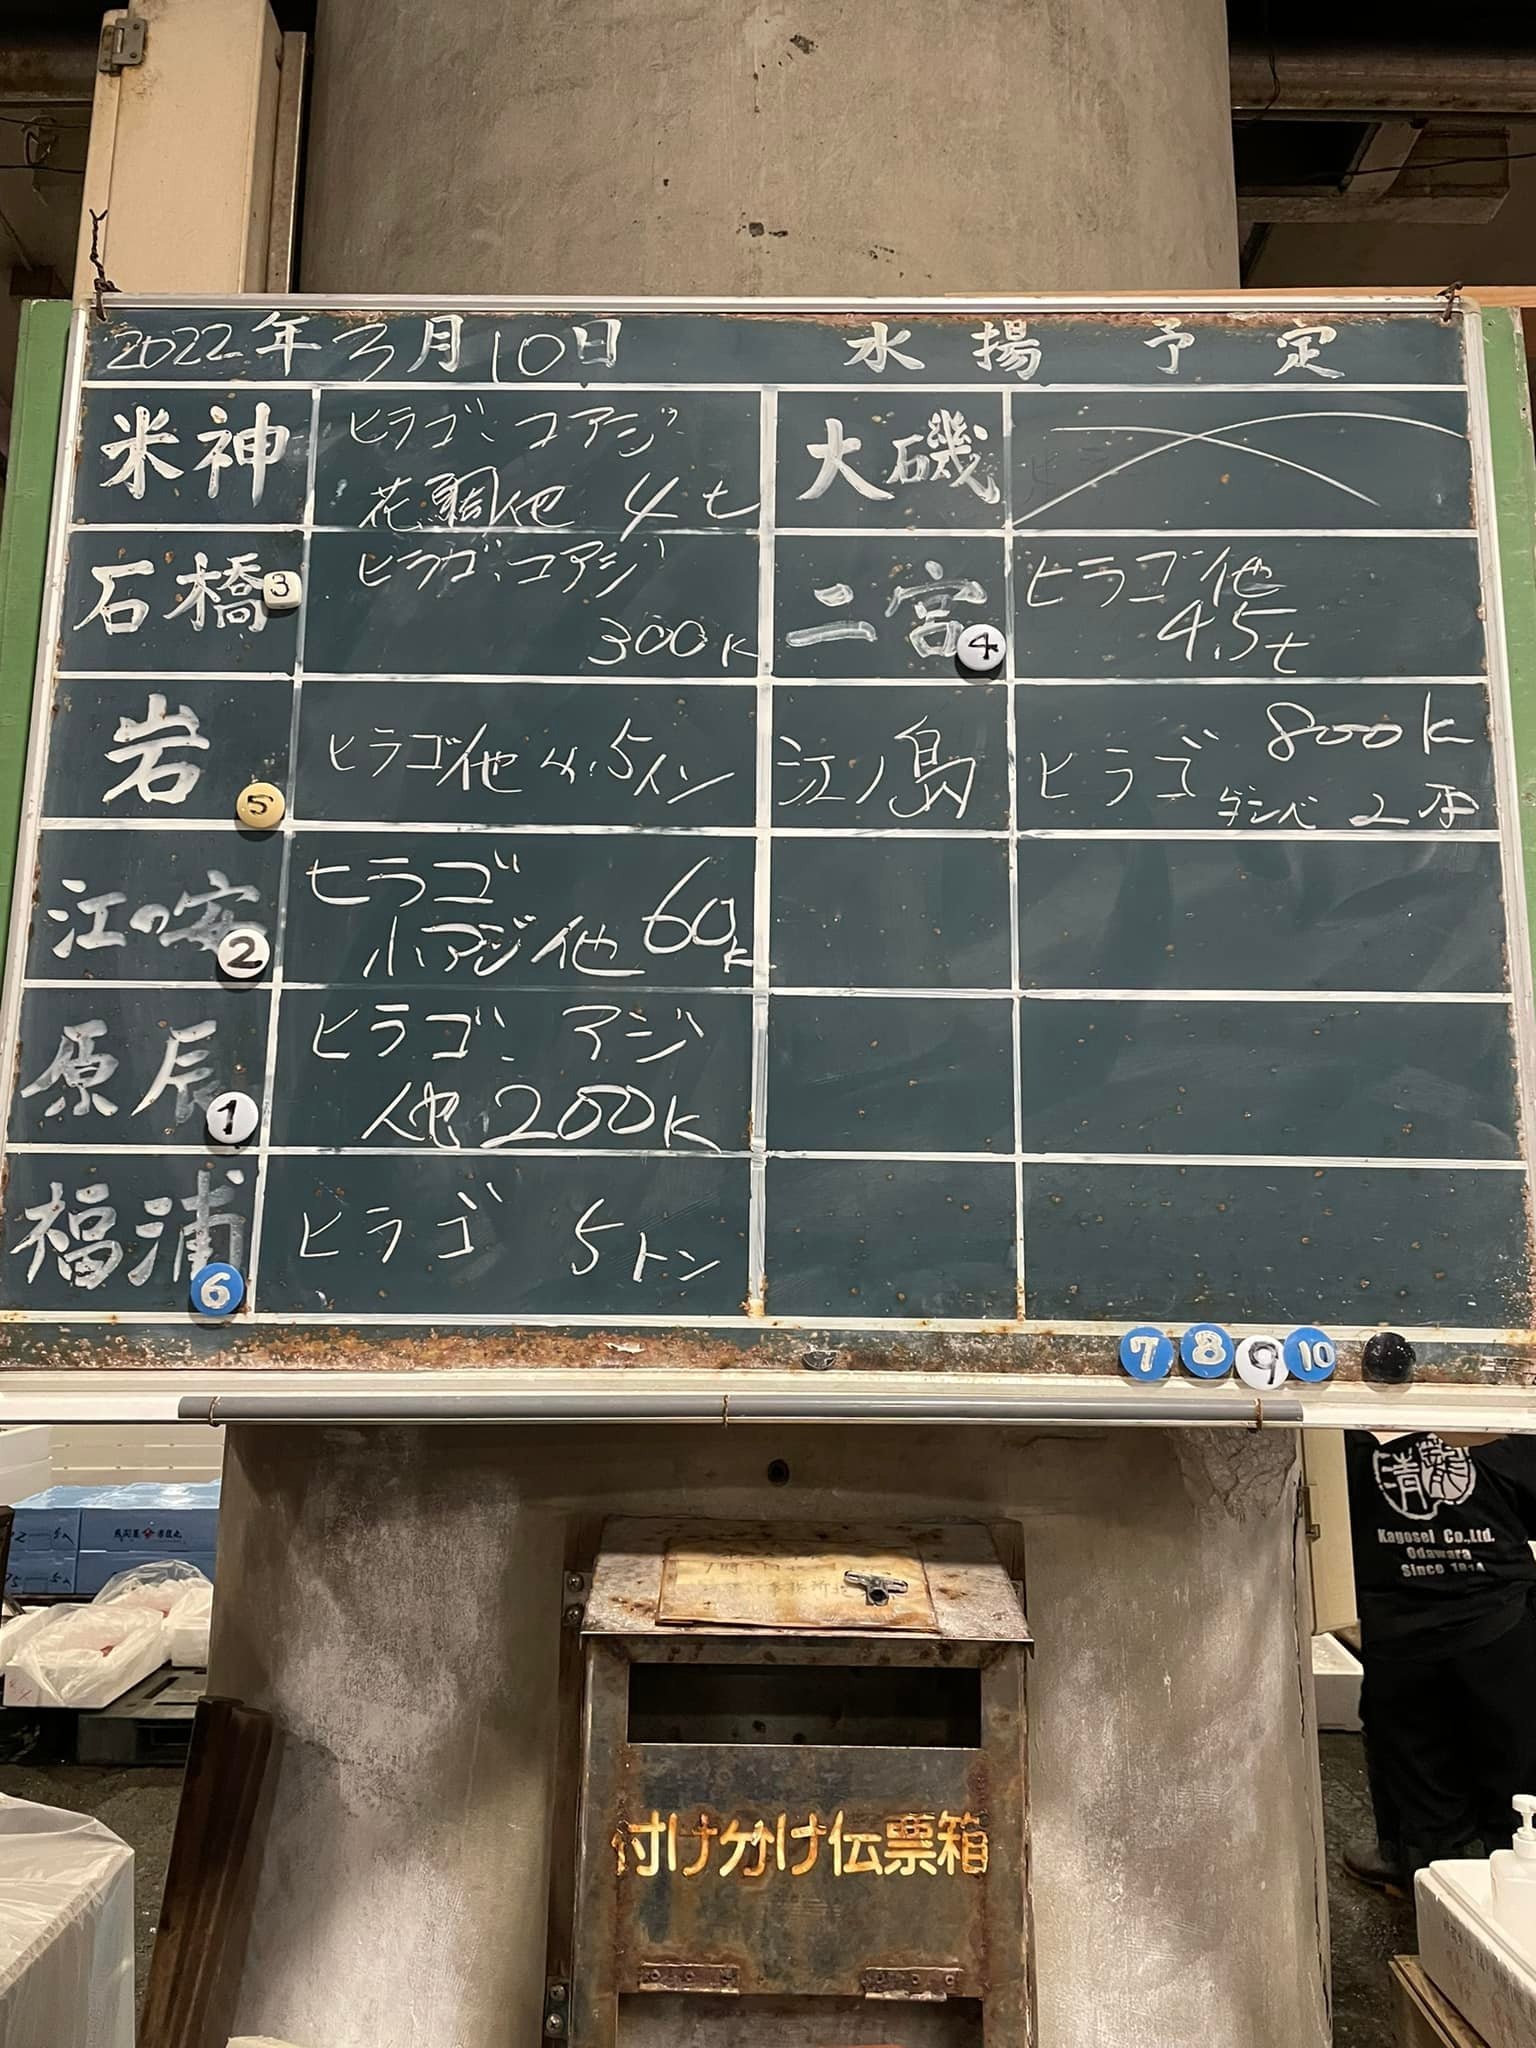 2022年3月10日 水揚予定
米神 ヒラゴ、コアジ
花鯛他 4t
石橋 3 ヒラゴ、コアジ
300K
岩 5 ヒラゴ他 4.5トン
江の安 2 ヒラゴ
小アジ他 60K
原辰 1 ヒラゴ、アジ
他 200K
福浦 6 ヒラゴ 5トン
大磯
二宮 4 ヒラゴ他
4.5t
江ノ島 ヒラゴ 800K
ダンベ 2
7 8 9 10
清龍
Kagosei Co.,Ltd.
Odawara
Since 1914
付け分け伝票箱